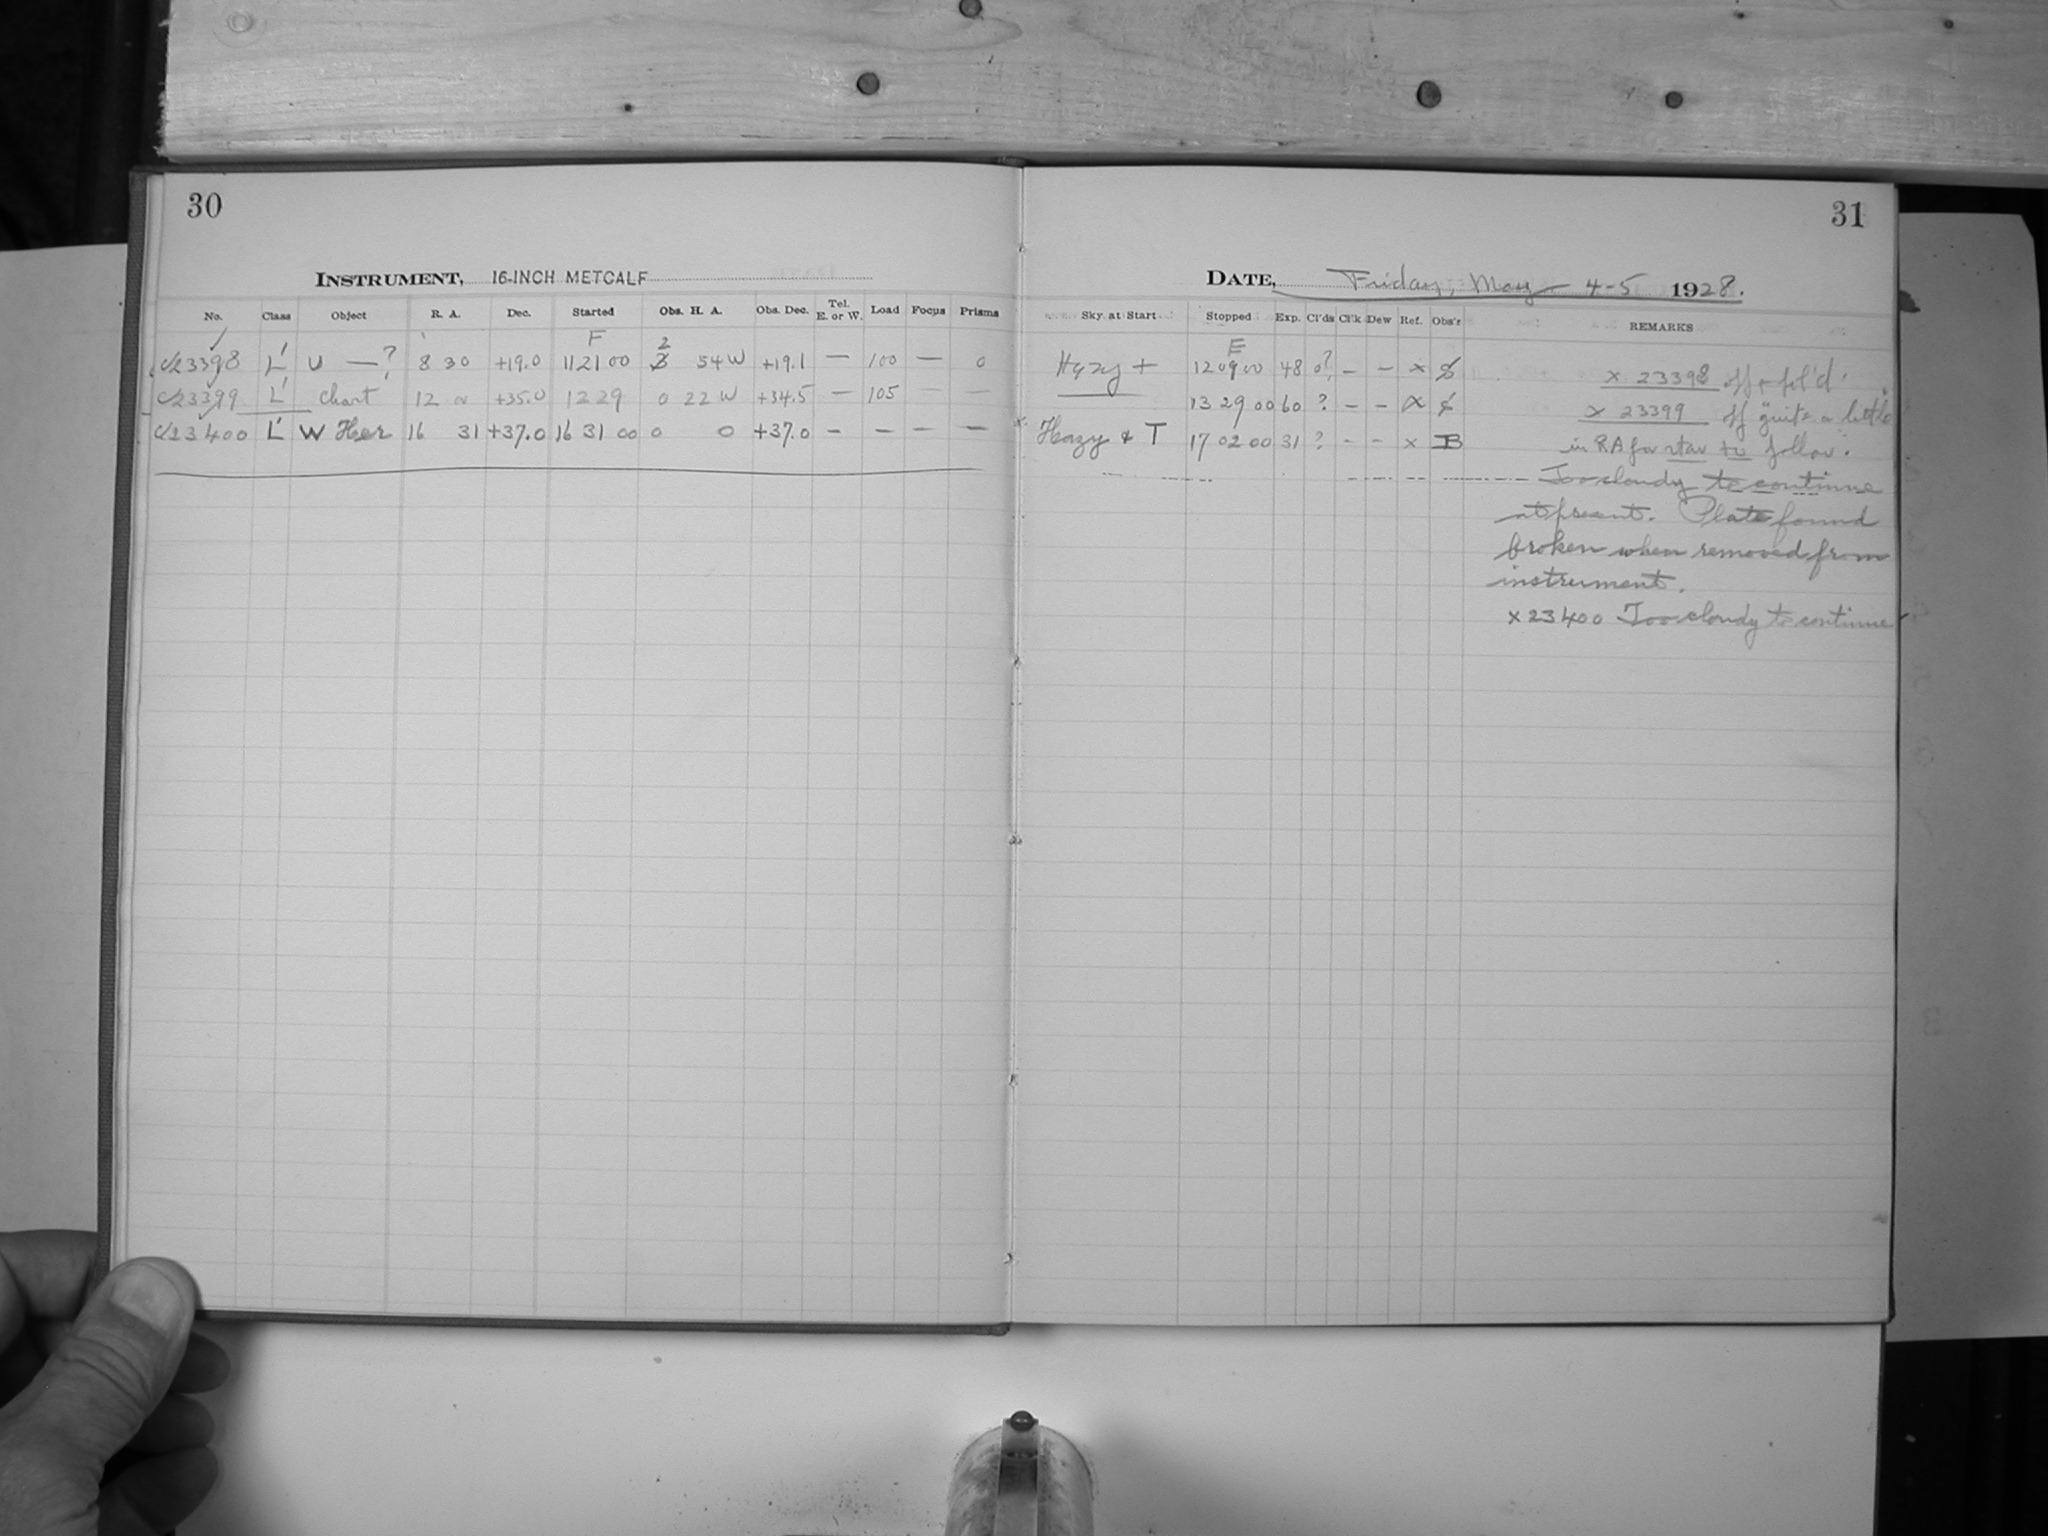 30
INSTRUMENT, 16-INCH METCALF
No. Class Object R. A. Dec. Started Obs. H. A. Obs. Dec. Tel. E. or W. Load Focus Prisms
F 2
23398 L' U — ? 8 30 +19.0 11 21 00 3 54 W +19.1 — 100 — 0
23399 L' Chart 12 0 +35.0 12 29 0 22 W +34.5 — 105 — —
23400 L' W Her 16 31 +37.0 16 31 00 0 0 +37.0 — — — —
31
DATE, Friday, May 4-5 1928.
Sky at Start Stopped Exp. Cl'ds Cl'k Dew Ref. Obs'r REMARKS
E
Hazy + 12 09 00 48 0? — — x x 23398 off & fol'd.
13 29 00 60 ? — — x x 23399 off quite a little
Hazy & T 17 02 00 31 ? - - x B in RA for star to follow.
Too cloudy to continue
at present. Plate found
broken when removed from
instrument.
x 23400 Too cloudy to continue